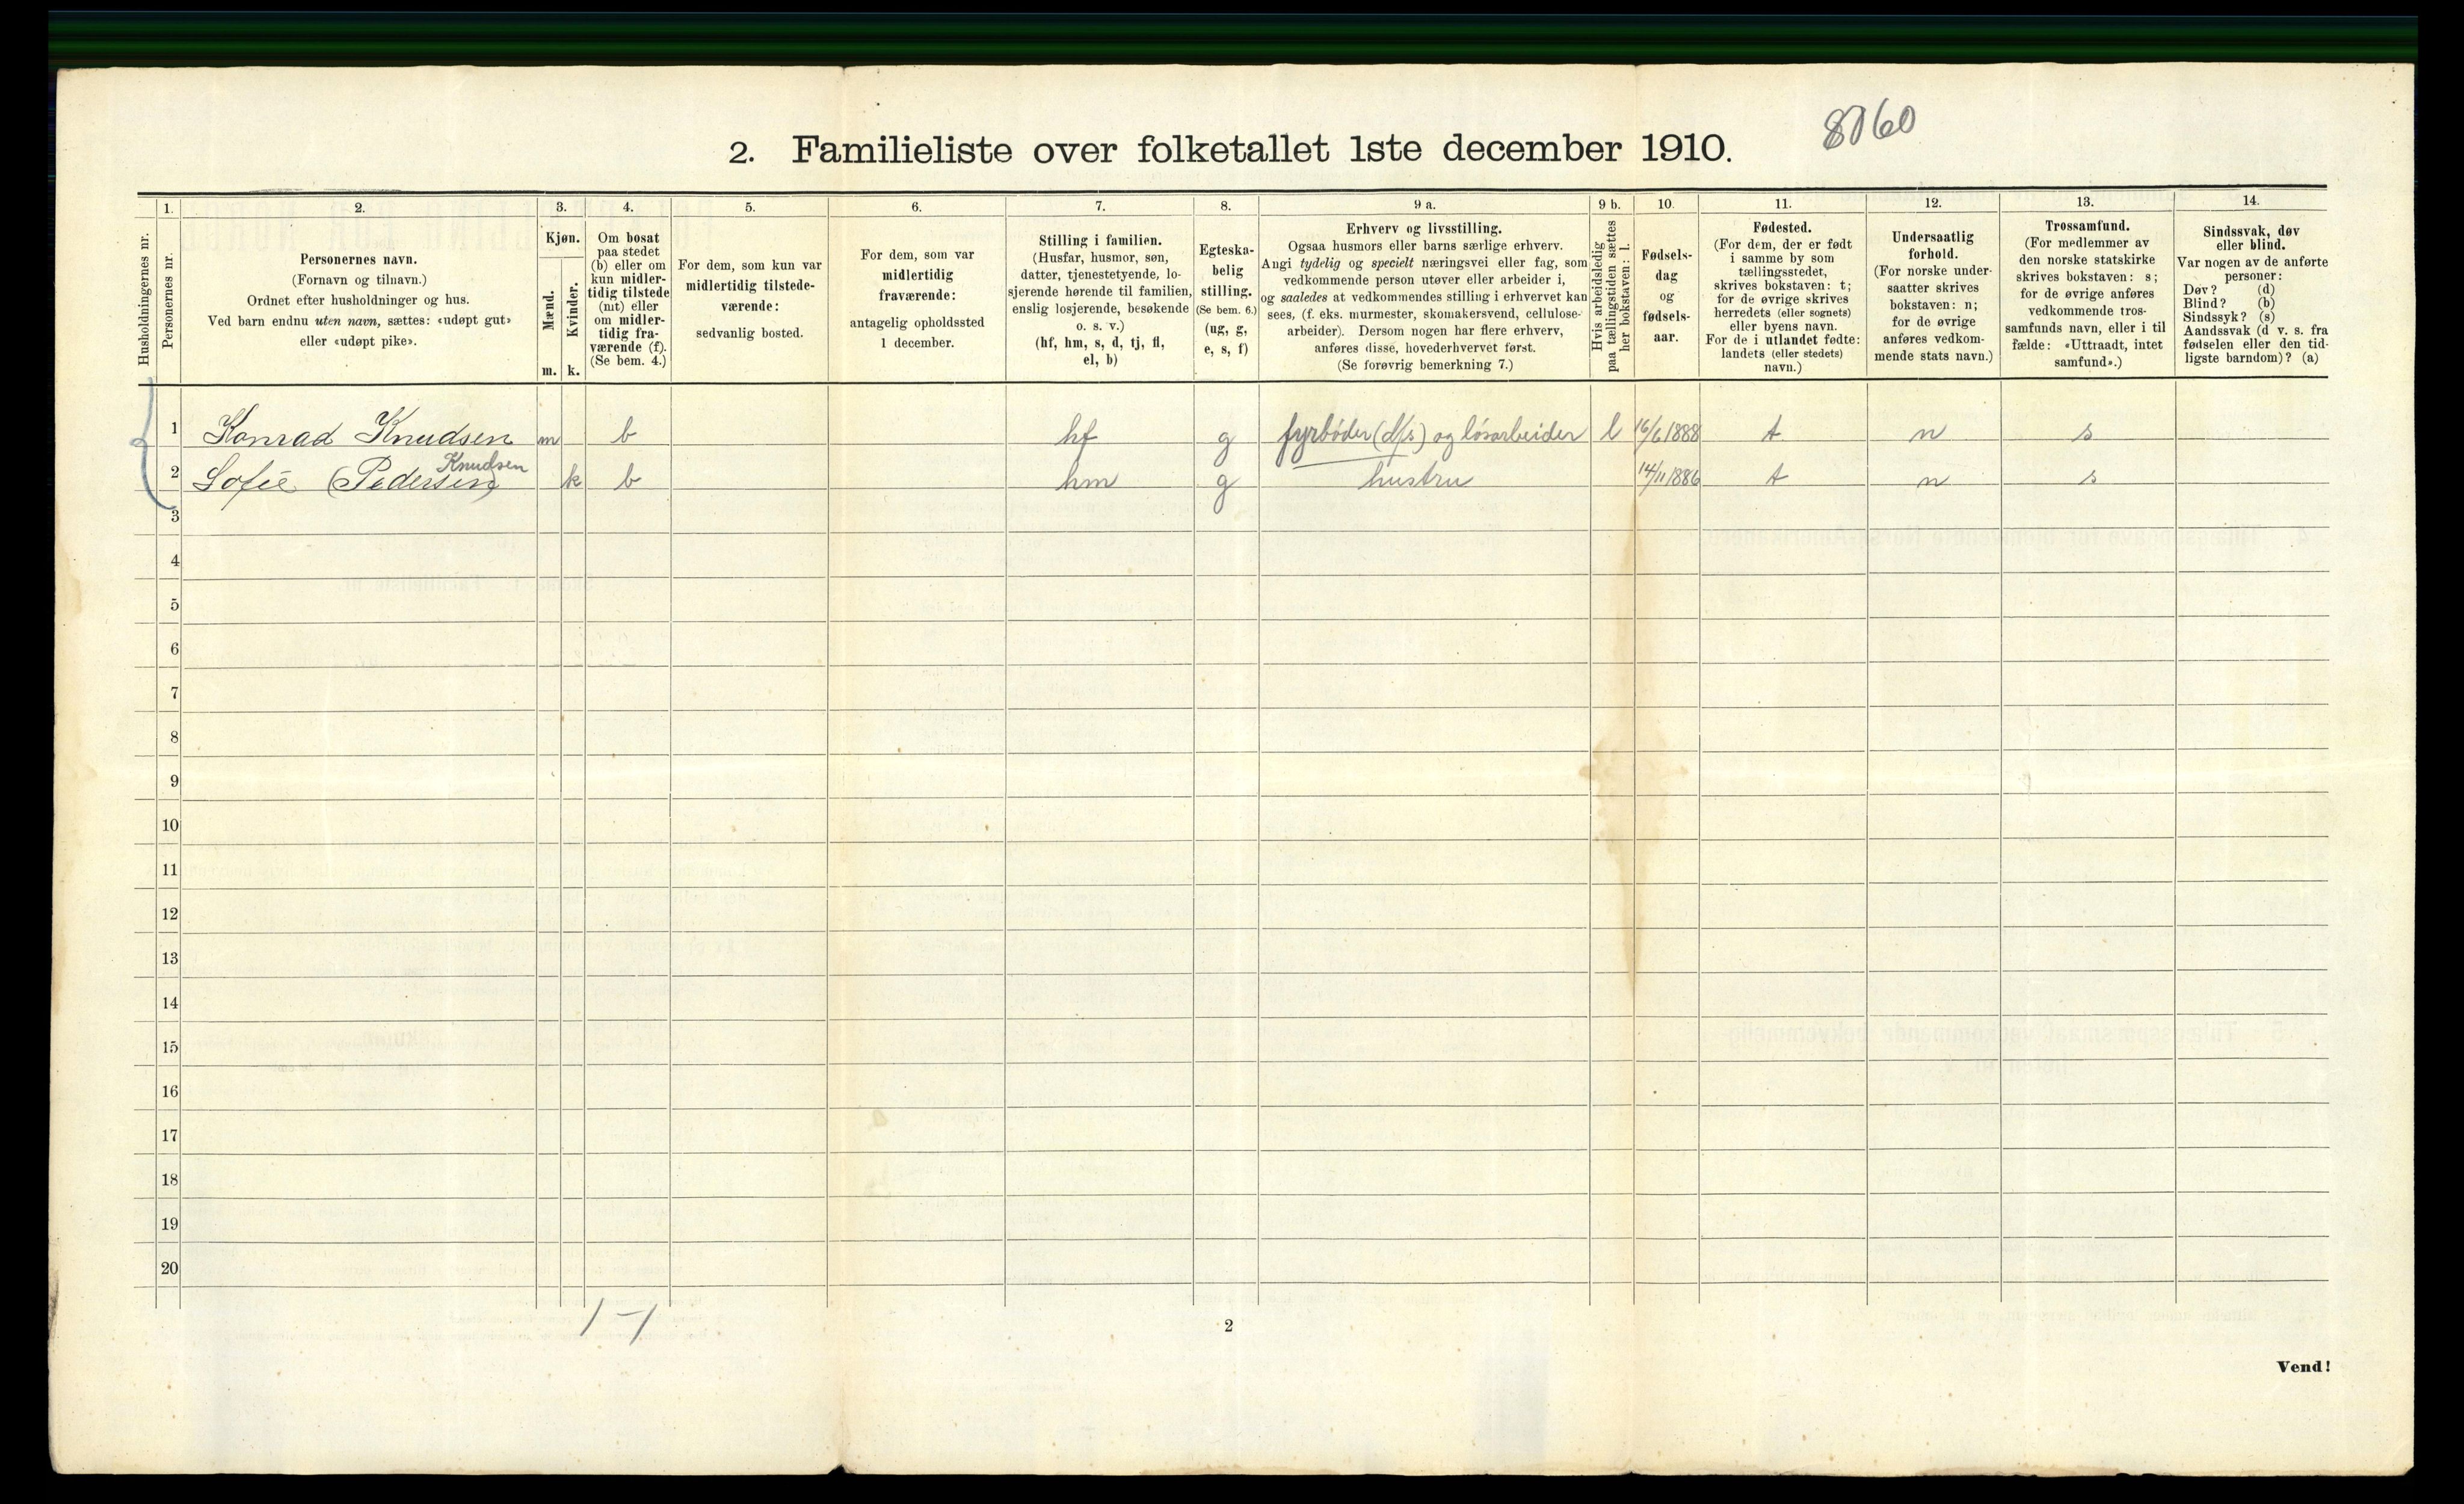 8060
2. Familieliste over folketallet 1ste december 1910.
Husholdningernes nr.
1.
Personernes nr.
2.
Personernes navn.
(Fornavn og tilnavn.)
Ordnet efter husholdninger og hus.
Ved barn endnu uten navn, sættes: «udøpt gut»
eller «udøpt pike».
3.
Kjøn.
Mænd.
Kvinder.
m.
k.
4.
Om bosat
paa stedet
(b) eller om
kun midler-
tidig tilstede
(mt) eller
om midler-
tidig fra-
værende (f).
(Se bem. 4.)
5.
For dem, som kun var
midlertidig tilstede-
værende:
sedvanlig bosted.
6.
For dem, som var
midlertidig
fraværende:
antagelig opholdssted
1 december.
7.
Stilling i familien.
(Husfar, husmor, søn,
datter, tjenestetyende, lo-
sjerende hørende til familien,
enslig losjerende, besøkende
o. s. v.)
(hf, hm, s, d, tj, fl,
el, b)
8.
Egteska-
belig
stilling.
(Se bem. 6.)
(ug, g,
e, s, f)
9 a.
Erhverv og livsstilling.
Ogsaa husmors eller barns særlige erhverv.
Angi tydelig og specielt næringsvei eller fag, som
vedkommende person utøver eller arbeider i,
og saaledes at vedkommendes stilling i erhvervet kan
sees, (f. eks. murmester, skomakersvend, cellulose-
arbeider). Dersom nogen har flere erhverv,
anføres disse, hovederhvervet først.
(Se forøvrig bemerkning 7.)
9 b.
Hvis arbeidsledig
paa tællingstiden sættes
her bokstaven: l.
10.
Fødsels-
dag
og
fødsels-
aar.
11.
Fødested.
(For dem, der er født
i samme by som
tællingsstedet,
skrives bokstaven: t;
for de øvrige skrives
herredets (eller sognets)
eller byens navn.
For de i utlandet fødte:
landets (eller stedets)
navn.)
12.
Undersaatlig
forhold.
(For norske under-
saatter skrives
bokstaven: n;
for de øvrige
anføres vedkom-
mende stats navn.)
13.
Trossamfund.
(For medlemmer av
den norske statskirke
skrives bokstaven: s;
for de øvrige anføres
vedkommende tros-
samfunds navn, eller i til
fælde: «Uttraadt, intet
samfund».)
14.
Sindssvak, døv
eller blind.
Var nogen av de anførte
personer:
Døv? (d)
Blind? (b)
Sindssyk? (s)
Aandssvak (d v. s. fra
fødselen eller den tid-
ligste barndom)? (a)
1 Konrad Knudsen m b hf g fyrbøder (d/s) og løsarbeider l 16/6 1888 t n s
Knudsen
2 Sofie (Pedersen) k b hm g hustru 14/11 1886 t n s
3
4
5
6
7
8
9
10
11
12
13
14
15
16
17
18
19
20
1 – 1
2
Vend!